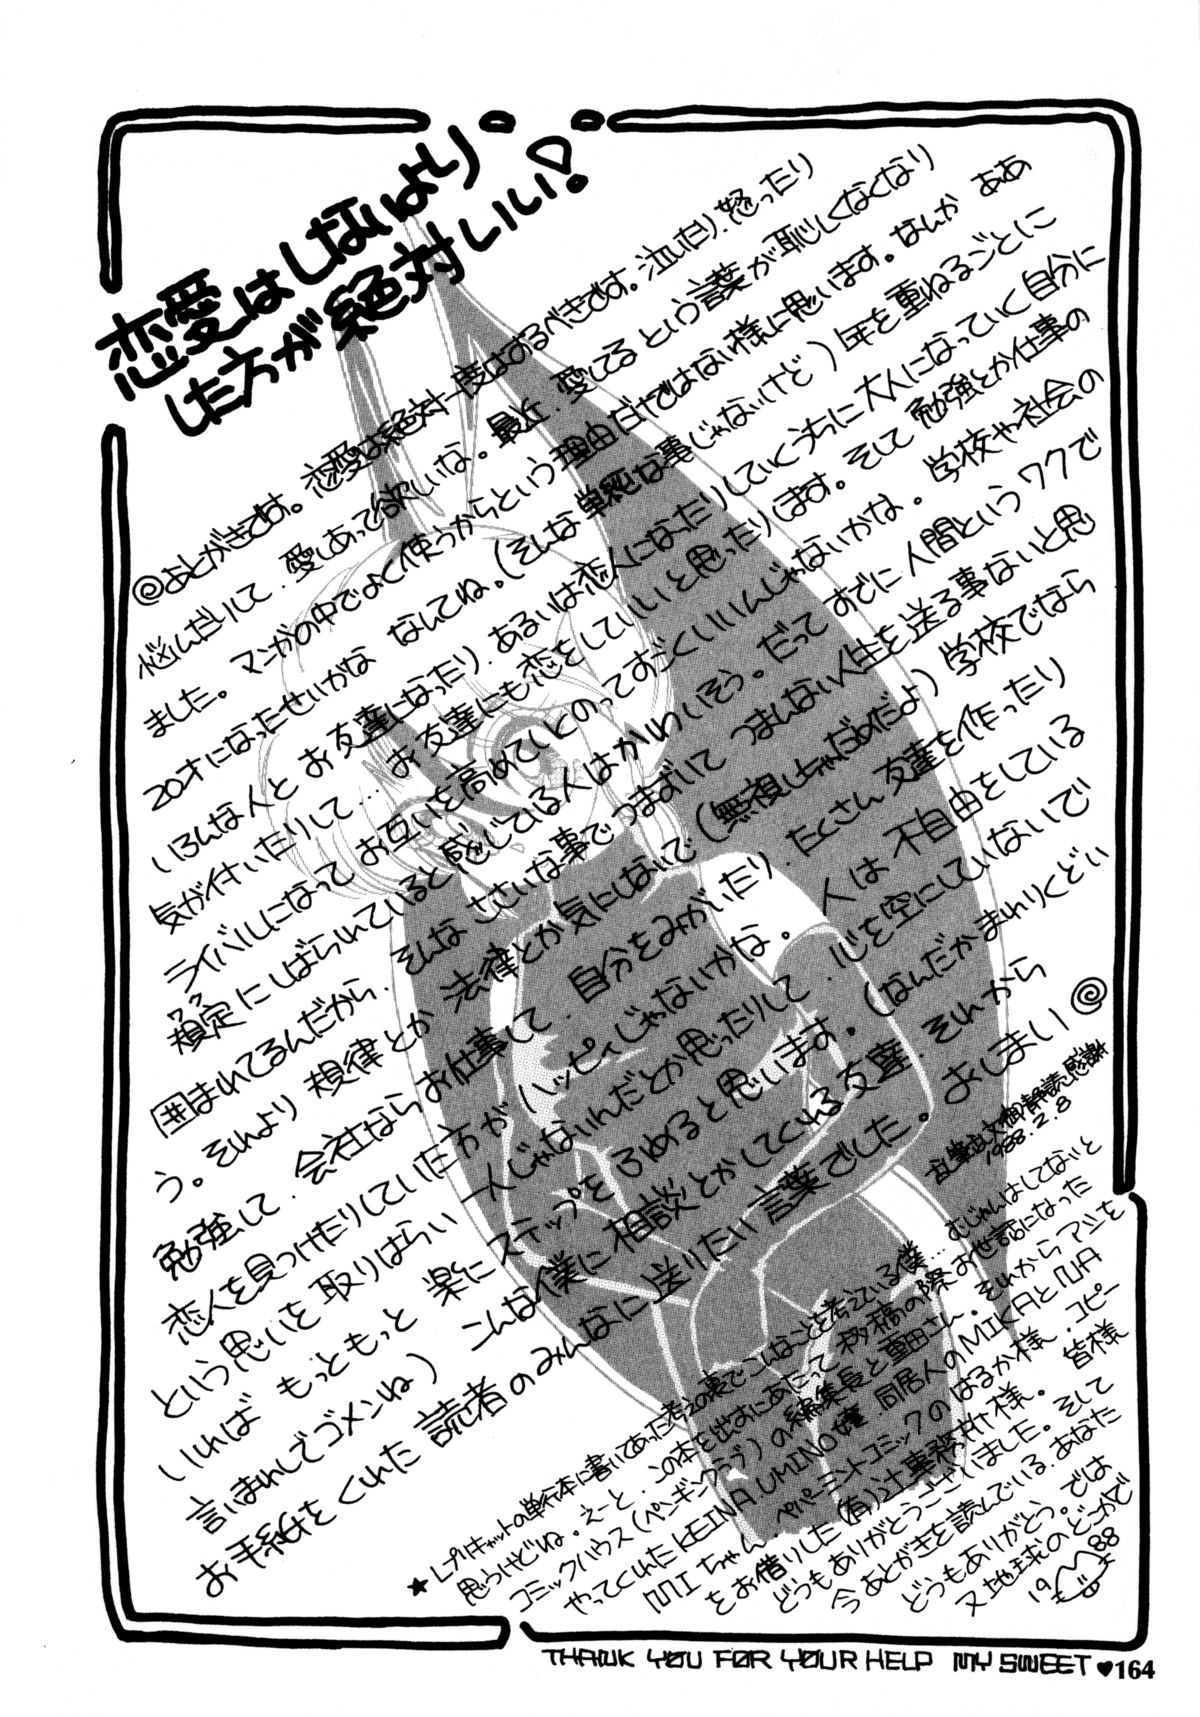 恋愛はしないより
した方が絶対いい!
@あとがきです。恋愛は絶対一度はするべきです。泣いたり、怒ったり
悩んだりして、愛しあって欲しいな。最近、愛してるという言葉が恥しくなくなり
ました。マンガの中でよく使うからという理由だけではない様に思います。なんか ああ
20才になったせいかな なんてね。(そんな単純な事じゃないけど)年を重ねるごとに
いろんな人とお友達になったり、あるいは恋人になったりしていくうちに大人になっていく自分に
気が付いたりして…お友達にも恋をしていいと思ったりします。そして勉強とか仕事の
ライバルになってお互いを高めていくとのってすごくいいんじゃないかな。学校や社会の
規定にしばられていると感じてる人はかわいそう。だってすでに人間というワクで
囲まれてるんだから、そんなささいな事でつまずいてつまんない人生を送る事ないと思
う。それより規律とか法律とか気にしないで(無視しちゃだめだよ)学校でなら
勉強して、会社ならお仕事して、自分をみがいたり、たくさん友達を作ったり
恋人を見つけたりしていた方がハッピィじゃないかな。人は不自由をしている
という思いを取りはらい一人じゃないんだとか思ったりして、心を空にしていないで
いれば もっともっと楽にステップをふめると思います。(なんだかまわりくどい
言いまわしでゴメンね)こんな僕に相談とかしてくれる友達、それから
お手紙をくれた読者のみんなに送りたい言葉でした。おしまい@
乱筆乱文御静読感謝
1988.2.8
★レプリキャットの単行本に書いてあった考えの裏でこんなことを考えている僕…むじゅんはしてないと
思うけどね。えーと、この本を出すにあたって移稿の際お世話になった
コミックハウス(ペンギンクラブ)の編集長と重田さん。それからアシを
やってくれたKEINA UMINO嬢、同居人のMIKAとNA
MIちゃん、ペパーミントコミックのはるか様、コピー
をお借りした(有)辻事務社様。皆様
どうもありがとうございました。そして
今あとがきを読んでいるあなた
どうもありがとう。では
又地球のどこかで
1988
THANK YOU FOR YOUR HELP MY SWEET ♥164